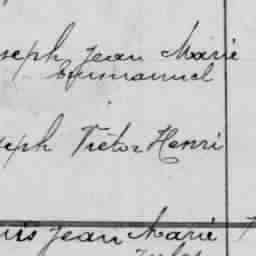 seph Jean Marie
Emmanuel
seph Victor Henri
uis Jean Marie
Jules